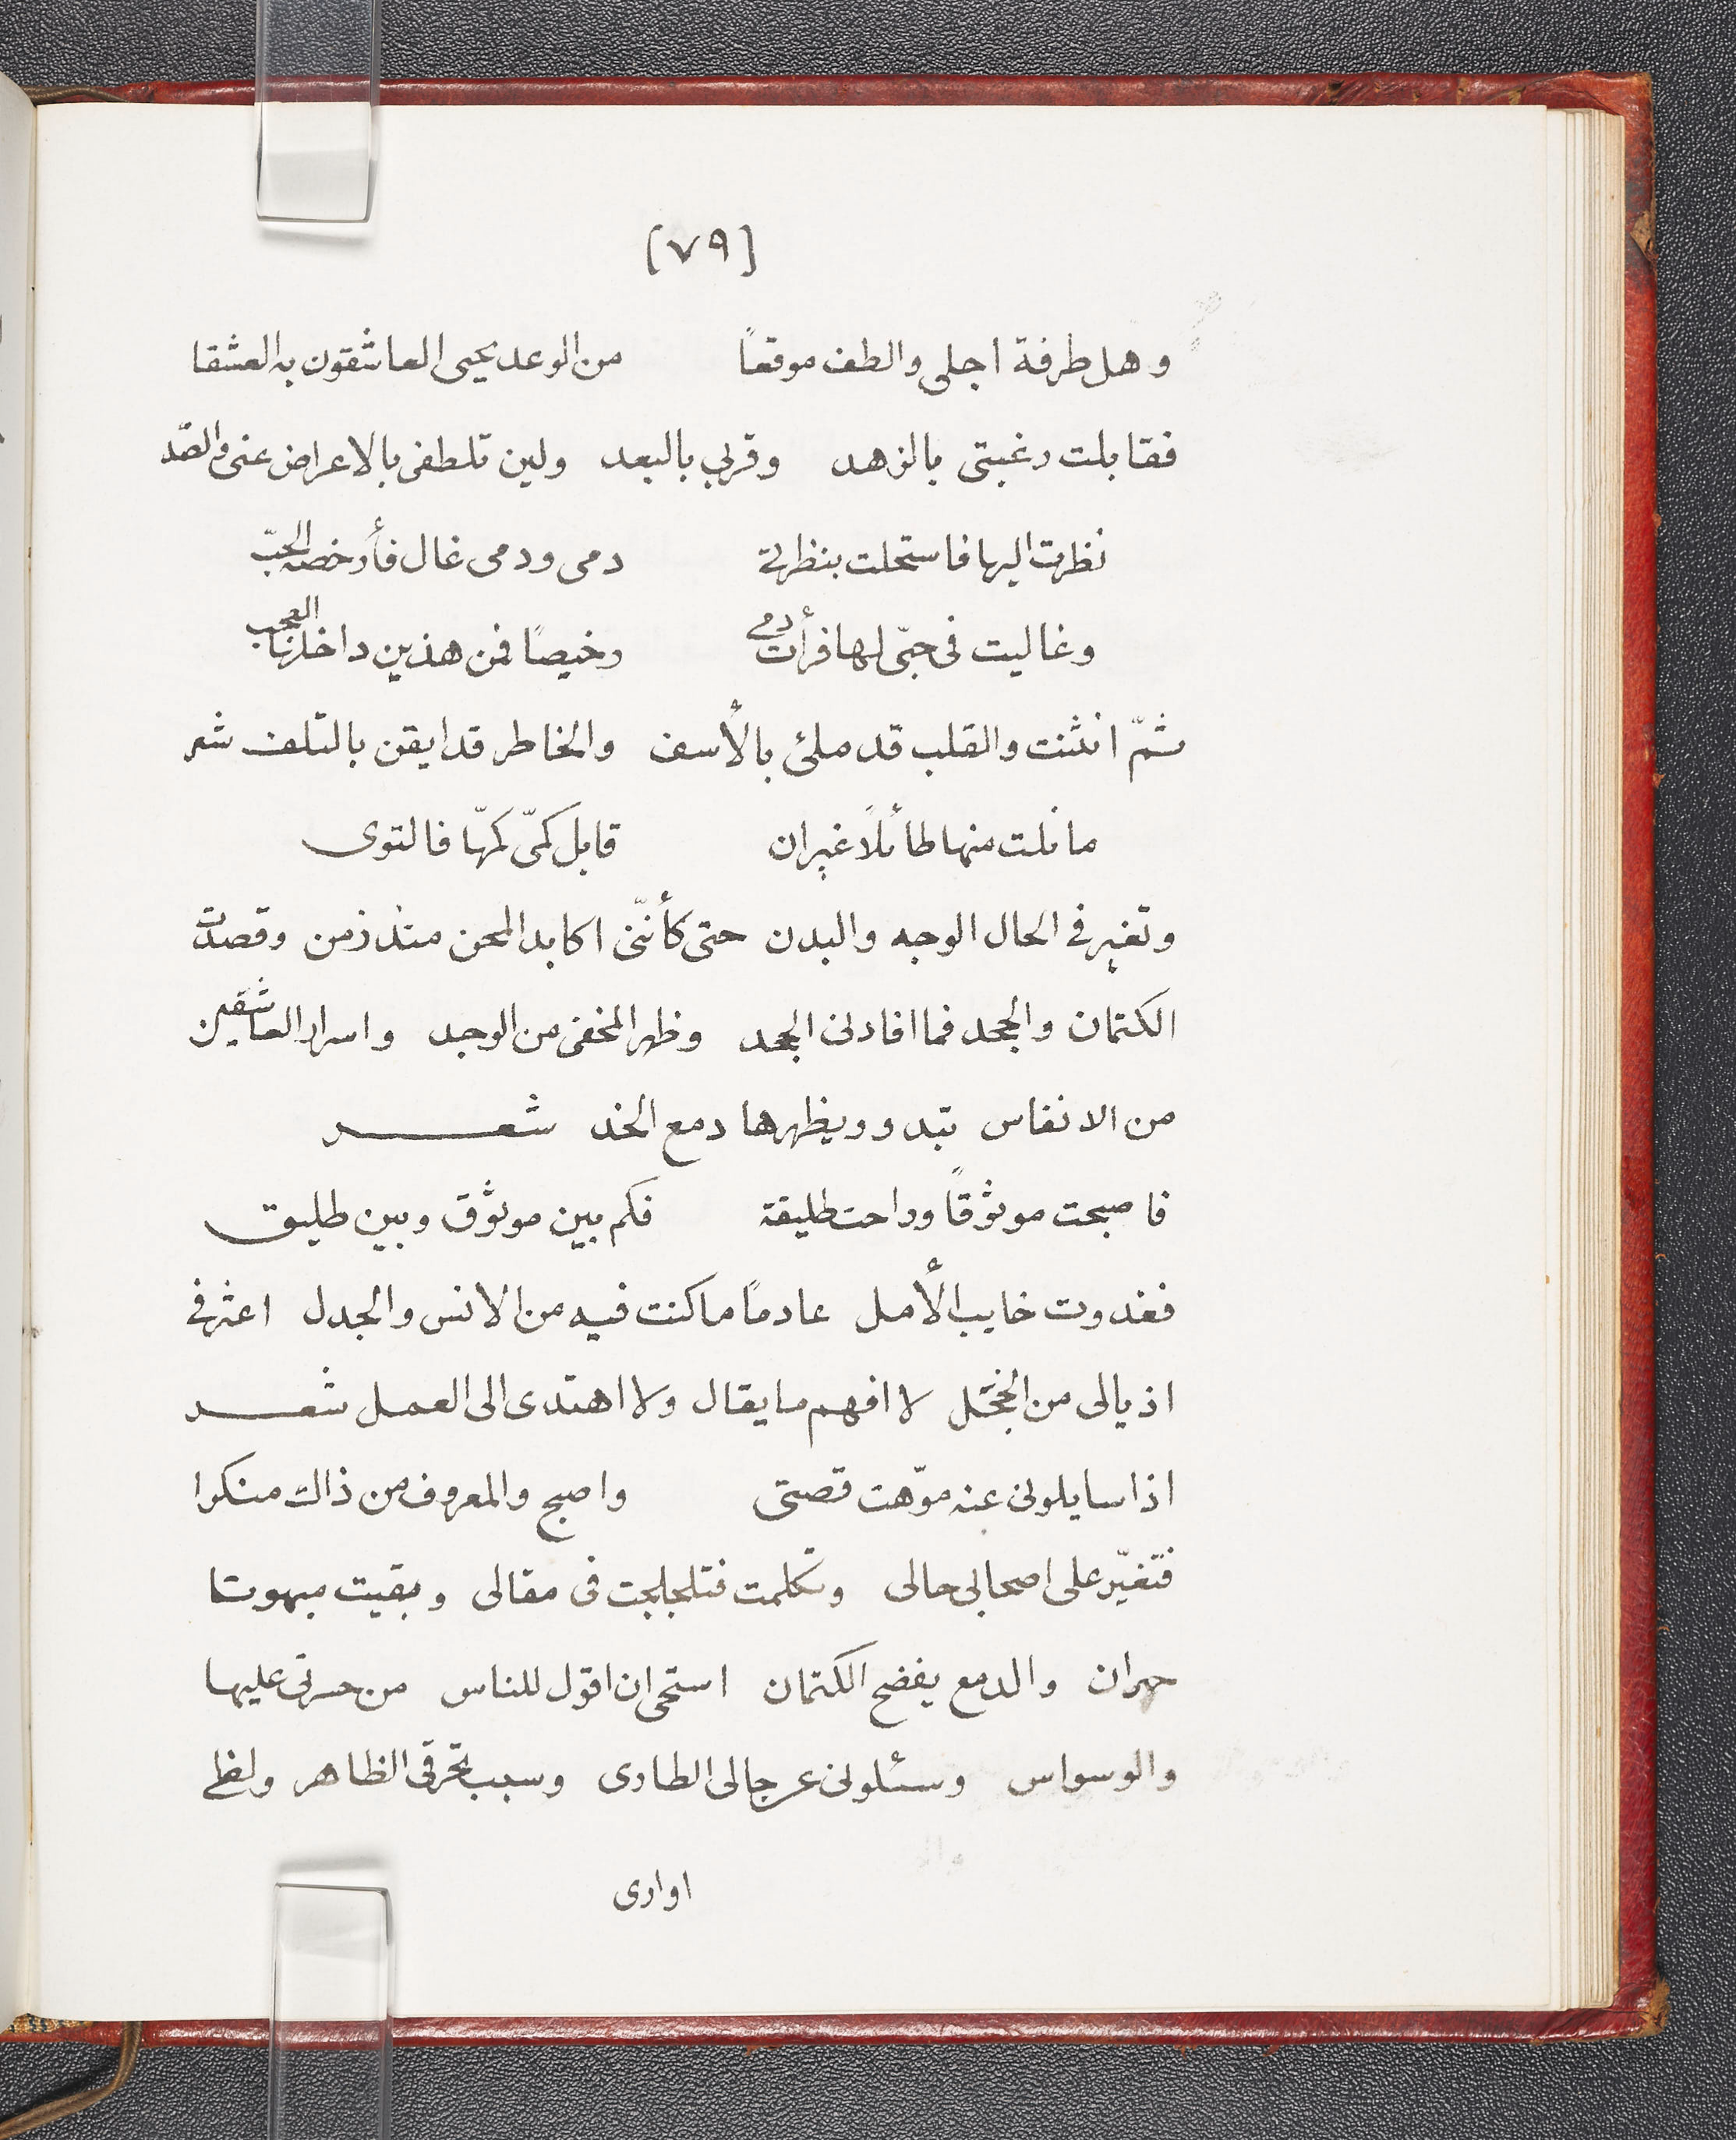 [٧٩]
وهل طرفة اجلى والطف موقعاً من الوعد يحيى العاشقون به العشقا
فقابلت رغبتى بالزهد وقربي بالبعد ولين تلطفى بالاعراض عنى والصّد
نظرت اليها فاستحلت بنظرتى دمى ودمى غال فأرخصه الحبّ
وغاليت فى حبّى لها فرأت دمى رخيصًا فمن هذين داخلها العجب
ثمّ انثنت والقلب قد ملئ بالأسف والخاطر قد ايقن بالتلف شعر
ما نلت منها طائلاً غير ان قابل كمّى كمّها فالتوى
وتغير فى الحال الوجه والبدن حتى كأنّنى اكابد المحن منذ زمن وقصدت
الكتمان والجحد فما افادنى الجحد وظهر المخفى من الوجد واسرار العاشقين
من الانفاس تبدو ويظهرها دمع الخد شعر
فاصبحت موثوقاً وراحت طليقة فكم بين موثوق وبين طليق
فغدوت خايب الأمل عادمًا ما كنت فيه من الانس والجدل اعثر فى
اذيالى من الخجل لا افهم ما يقال ولا اهتدى الى العمل شعر
اذا سايلونى عنه موّهت قصتى واصبح والمعروف من ذاك منكرا
فتغيّر على اصحابى حالى وتكلمت فتلجلجت فى مقالى وبقيت مبهوتا
حيران والدمع يفضح الكتمان استحى ان اقول للناس من حسرتى عليها
والوسواس وسئلونى عن حالى الطارى وسبب تحرقى الظاهر ولظى
اوارى